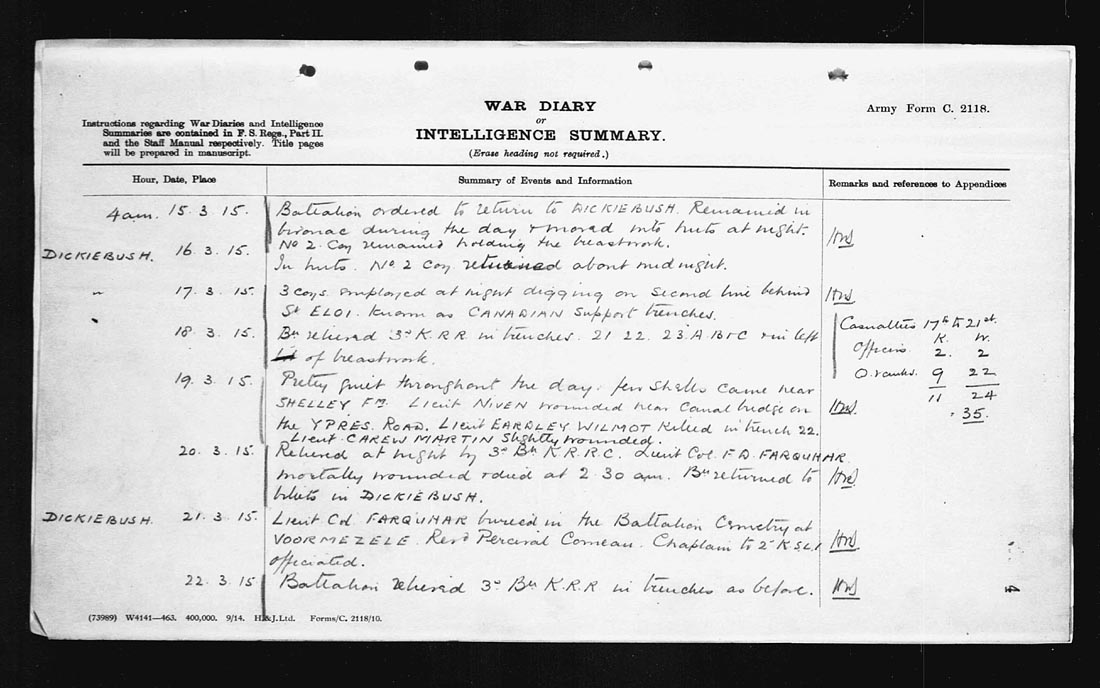 WAR DIARY
or
INTELLIGENCE SUMMARY.
(Erase heading not required.)
Army Form C. 2118.
Instructions regarding War Diaries and Intelligence
Summaries are contained in F. S. Regs., Part II.
and the Staff Manual respectively. Title pages
will be prepared in manuscript.
Hour, Date, Place
Summary of Events and Information
Remarks and references to Appendices
4am. 15.3.15. Battalion ordered to return to DICKIEBUSH. Remained in
bivouac during the day & moved into huts at night.
No 2 Coy remained holding the breastwork.
DICKIEBUSH. 16.3.15. In huts. No 2 Coy returned about midnight.
" 17.3.15. 3 coys employed at night digging on second line behind
St ELOI. known as CANADIAN Support trenches.
18.3.15. Bn relieved 3rd K.R.R in trenches. 21 22. 23.A B & C & in left
of breastwork.
Casualties 17th to 21st.
K. W.
Officers. 2. 2
O. ranks. 9 22
11 24
35.
19.3.15. Pretty quiet throughout the day. few shells came near
SHELLEY FM. Lieut NIVEN wounded near Canal bridge on
the YPRES ROAD. Lieut EARDLEY WILMOT killed in trench 22.
Lieut. CAREW MARTIN slightly wounded.
20.3.15. Relieved at night by 3rd Bn K.R.R.C. Lieut Col. F.D. FARQUHAR
mortally wounded & died at 2.30 am. Bn returned to
billets in DICKIEBUSH.
DICKIEBUSH. 21.3.15. Lieut Col FARQUHAR buried in the Battalion Cemetry at
VOORMEZELE. Revd Percival Comeau. Chaplain to 2nd K.S.L.I
officiated.
22.3.15 Battalion relieved 3rd Bn K.R.R in trenches as before.
4
(73989) W4141—463. 400,000. 9/14. H.&J.Ltd. Forms/C. 2118/10.